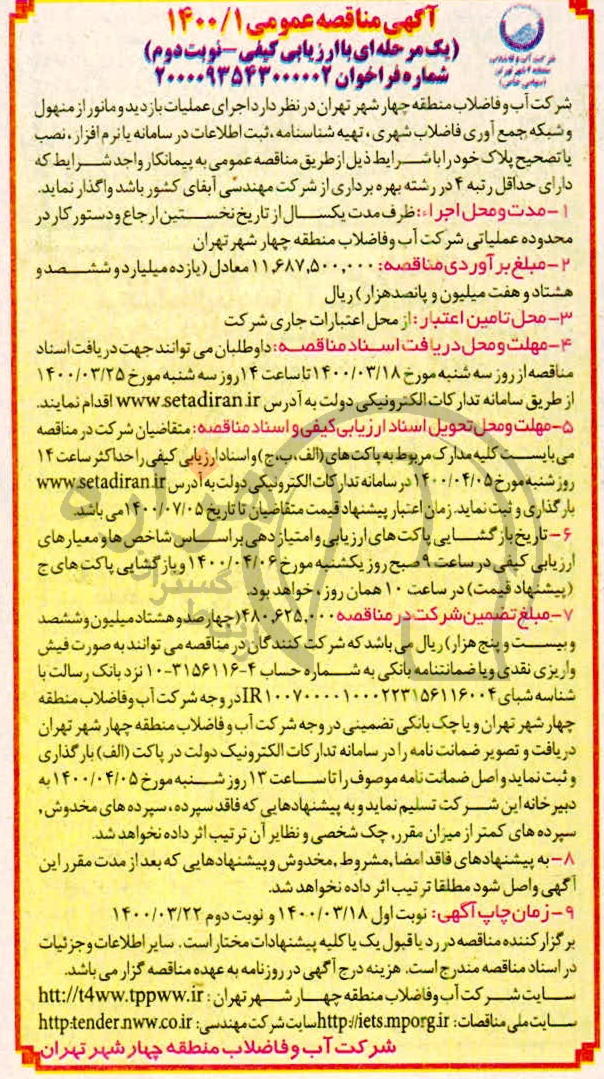 آگهی مناقصه عمومی ۱۴۰۰/۱
(یک مرحله‌ای با ارزیابی کیفی – نوبت دوم)
شماره فراخوان ۲۰۰۰۰۹۳۵۴۳۰۰۰۰۰۲
شرکت آب و فاضلاب
منطقه ۴ شهر تهران
(سهامی خاص)
شرکت آب و فاضلاب منطقه چهار شهر تهران در نظر دارد اجرای عملیات بازدید و مانور از منهول
و شبکه جمع آوری فاضلاب شهری، تهیه شناسنامه، ثبت اطلاعات در سامانه یا نرم افزار، نصب
یا تصحیح پلاک خود را با شرایط ذیل از طریق مناقصه عمومی به پیمانکار واجد شرایط که
دارای حداقل رتبه ۴ در رشته بهره برداری از شرکت مهندسی آبفای کشور باشد واگذار نماید.
۱- مدت و محل اجراء: ظرف مدت یکسال از تاریخ نخستین ارجاع و دستور کار در
محدوده عملیاتی شرکت آب و فاضلاب منطقه چهار شهر تهران
۲- مبلغ برآوردی مناقصه: ۱۱,۶۸۷,۵۰۰,۰۰۰ معادل (یازده میلیارد و ششصد و
هشتاد و هفت میلیون و پانصد هزار) ریال
۳- محل تامین اعتبار: از محل اعتبارات جاری شرکت
۴- مهلت و محل دریافت اسناد مناقصه: داوطلبان می توانند جهت دریافت اسناد
مناقصه از روز سه شنبه مورخ ۱۴۰۰/۰۳/۱۸ تا ساعت ۱۴ روز سه شنبه مورخ ۱۴۰۰/۰۳/۲۵
از طریق سامانه تدارکات الکترونیکی دولت به آدرس www.setadiran.ir اقدام نمایند.
۵- مهلت و محل تحویل اسناد ارزیابی کیفی و اسناد مناقصه: متقاضیان شرکت در مناقصه
می بایست کلیه مدارک مربوط به پاکت های (الف، ب، ج) و اسناد ارزیابی کیفی را حداکثر ساعت ۱۴
روز شنبه مورخ ۱۴۰۰/۰۴/۰۵ در سامانه تدارکات الکترونیکی دولت به آدرس www.setadiran.ir
بارگذاری و ثبت نماید. زمان اعتبار پیشنهاد قیمت متقاضیان تا تاریخ ۱۴۰۰/۰۷/۰۵ می باشد.
۶- تاریخ بازگشایی پاکت های ارزیابی و امتیاز دهی بر اساس شاخص ها و معیارهای
ارزیابی کیفی در ساعت ۹ صبح روز یکشنبه مورخ ۱۴۰۰/۰۴/۰۶ و بازگشایی پاکت های ج
(پیشنهاد قیمت) در ساعت ۱۰ همان روز، خواهد بود.
۷- مبلغ تضمین شرکت در مناقصه ۴۸۰,۶۲۵,۰۰۰ (چهارصد و هشتاد میلیون و ششصد
و بیست و پنج هزار) ریال می باشد که شرکت کنندگان در مناقصه می توانند به صورت فیش
واریزی نقدی و یا ضمانتنامه بانکی به شماره حساب ۴-۳۱۵۶۱۱۶-۱۰ نزد بانک رسالت با
شناسه شبای IR۱۰۰۷۰۰۰۰۱۰۰۰۲۲۳۱۵۶۱۱۶۰۰۴ در وجه شرکت آب و فاضلاب منطقه
چهار شهر تهران و یا چک بانکی تضمینی در وجه شرکت آب و فاضلاب منطقه چهار شهر تهران
دریافت و تصویر ضمانت نامه را در سامانه تدارکات الکترونیک دولت در پاکت (الف) بارگذاری
و ثبت نماید و اصل ضمانت نامه موصوف را تا ساعت ۱۳ روز شنبه مورخ ۱۴۰۰/۰۴/۰۵ به
دبیرخانه این شرکت تسلیم نماید و به پیشنهادهایی که فاقد سپرده، سپرده های مخدوش،
سپرده های کمتر از میزان مقرر، چک شخصی و نظایر آن ترتیب اثر داده نخواهد شد.
۸- به پیشنهادهای فاقد امضا، مشروط، مخدوش و پیشنهادهایی که بعد از مدت مقرر این
آگهی واصل شود مطلقا ترتیب اثر داده نخواهد شد.
۹- زمان چاپ آگهی: نوبت اول ۱۴۰۰/۰۳/۱۸ و نوبت دوم ۱۴۰۰/۰۳/۲۲
برگزار کننده مناقصه در رد یا قبول یک یا کلیه پیشنهادات مختار است. سایر اطلاعات و جزئیات
در اسناد مناقصه مندرج است. هزینه درج آگهی در روزنامه به عهده مناقصه گزار می باشد.
سایت شرکت آب و فاضلاب منطقه چهار شهر تهران: htt://t4ww.tppww.ir
سایت ملی مناقصات: http://iets.mporg.ir سایت شرکت مهندسی: http:tender.nww.co.ir
شرکت آب و فاضلاب منطقه چهار شهر تهران